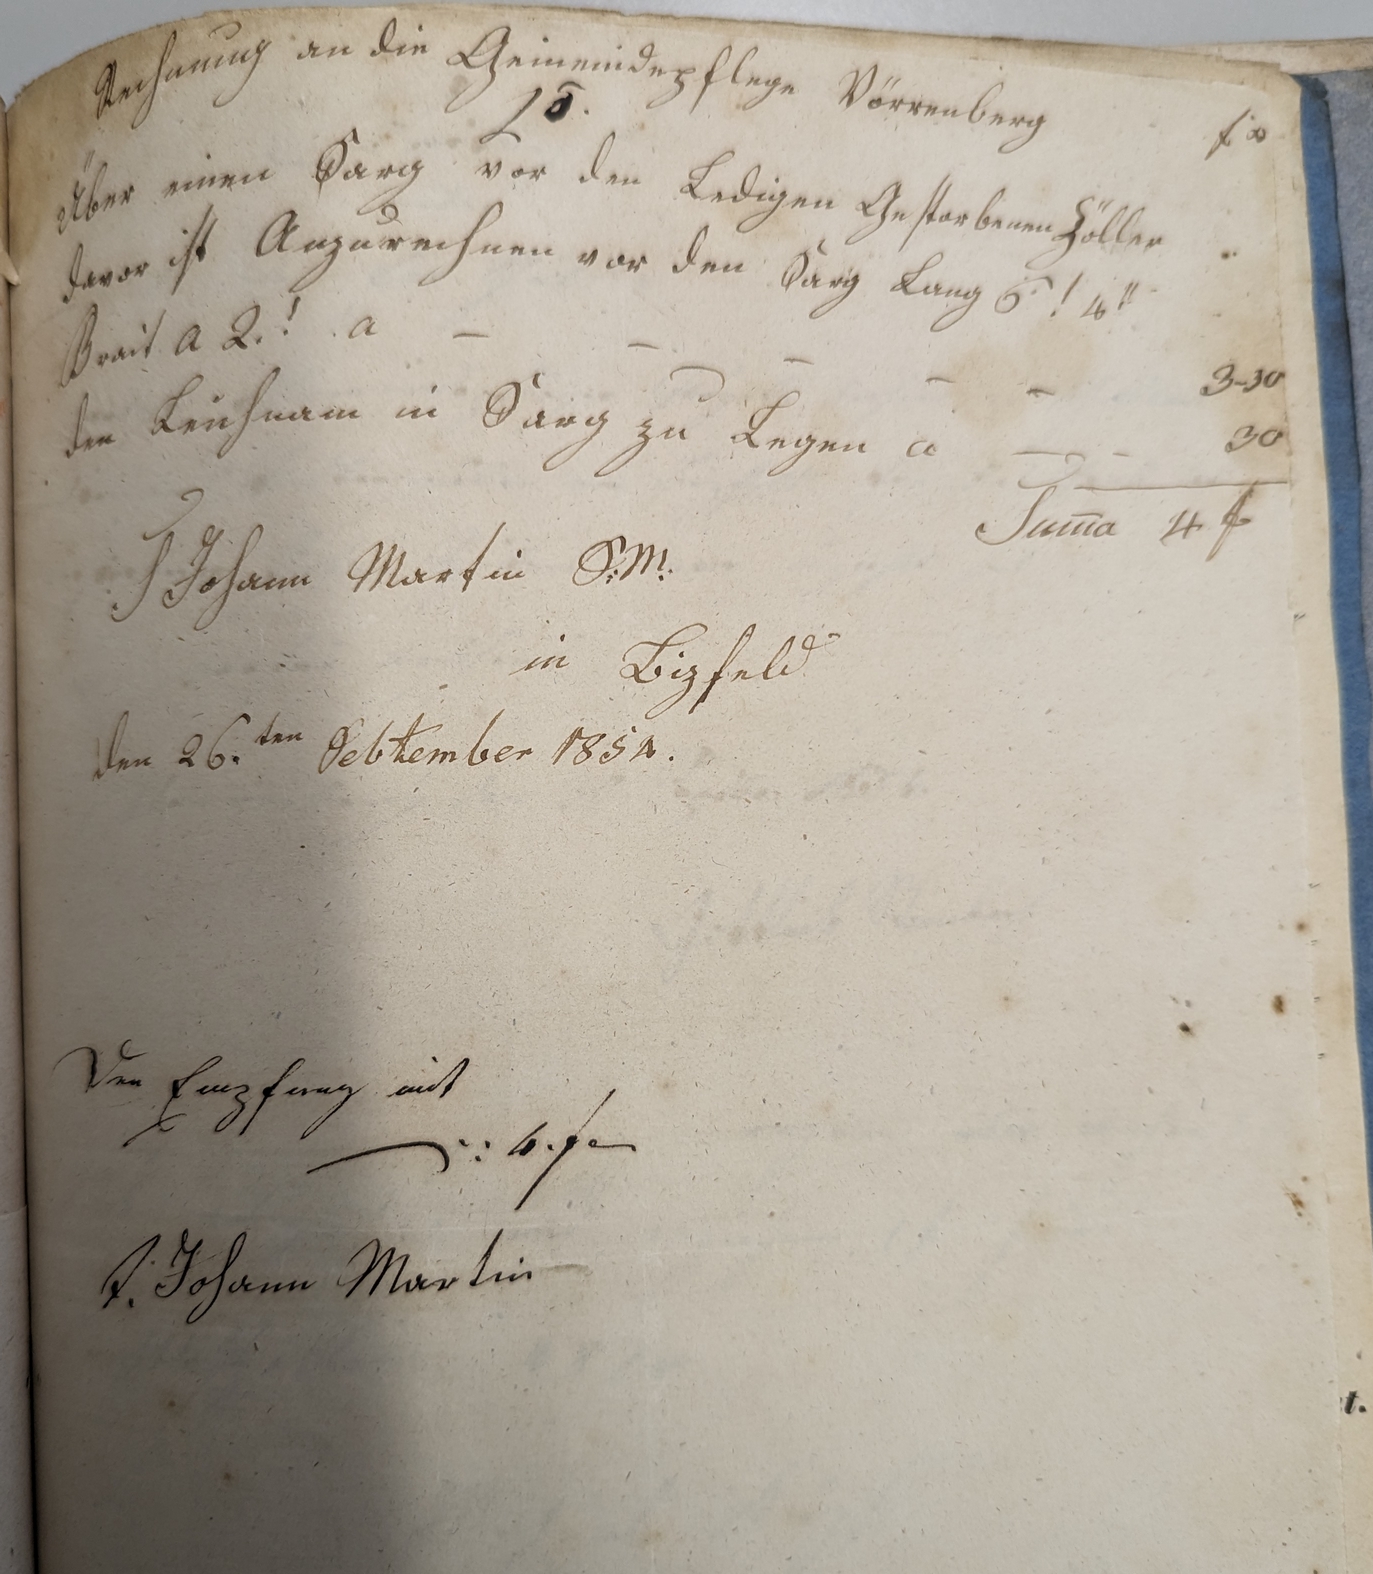 Rechnung an die Gemeindepflege Dörrenberg
18.
f x
Über einen Sarg vor den Ledigen Gestorbenen Höller
davor ist Anzurechnen vor den Sarg Lang 6! 4"
Brait a 2.! a — — — — — 3-30
den Leichnam in Sarg zu Legen a — - 30
Suma 4 f
Johann Martin S:M:
in Bizfeld
den 26.ten Sebtember 1854.
Den Empfang mit
: 4. f
Johann Martin
t.